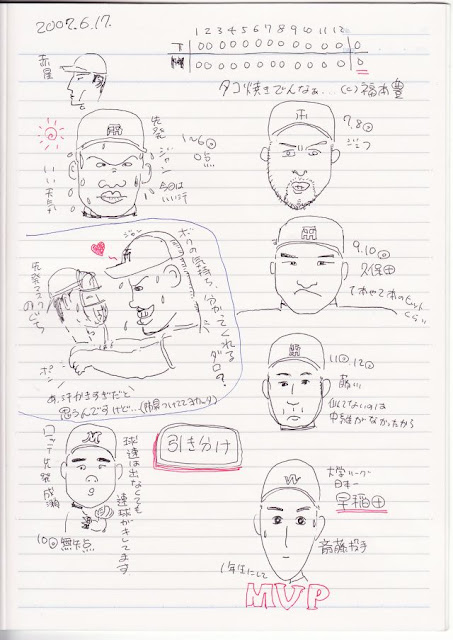 2007.6.17.
1 2 3 4 5 6 7 8 9 10 11 12
T 0 0 0 0 0 0 0 0 0 0 0 0 0
0 0 0 0 0 0 0 0 0 0 0 0 0
タコ焼きでんなぁ… (C)福本豊
赤星
いい天気
先発
ジャン
1〜6回
0点
今回は
いい汗
7,8回
ジェフ
9.10回
久保田
11回 12回
藤川
似てないのは
中継がなかったから
ジャン
ボクの気持ち、分かってくれる
ダロ?
先発マスク
のぐち
ポン
あ、汗かきすぎだと
思うんですけど…
引き分け
ロッテ先発 成瀬
10回無失点
球速は出なくても
速球がキレてます
大学リーグ
日本一
早稲田
斎藤投手
1年生にして
MVP